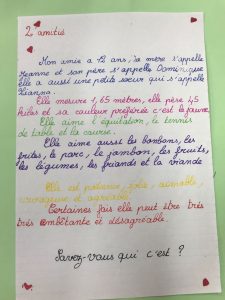 L'amitié
Mon amie a 12 ans, sa mère s'appelle
Jeanne et son père s'appelle Dominique
elle a aussi une petite sœur qui s'appelle
Lianna.
Elle mesure 1,65 mètres, elle pèse 45
kilos et sa couleur préférée c'est le jaune.
Elle aime l'équitation, le tennis
de table et la course.
Elle aime aussi les bonbons, les
frites, le porc, le jambon, les fruits,
les légumes, les friands et la viande
Elle est patiente, jolie, aimable,
courageuse et agréable.
Certaines fois elle peut être très
très embêtante et désagréable.
Savez-vous qui c'est ?